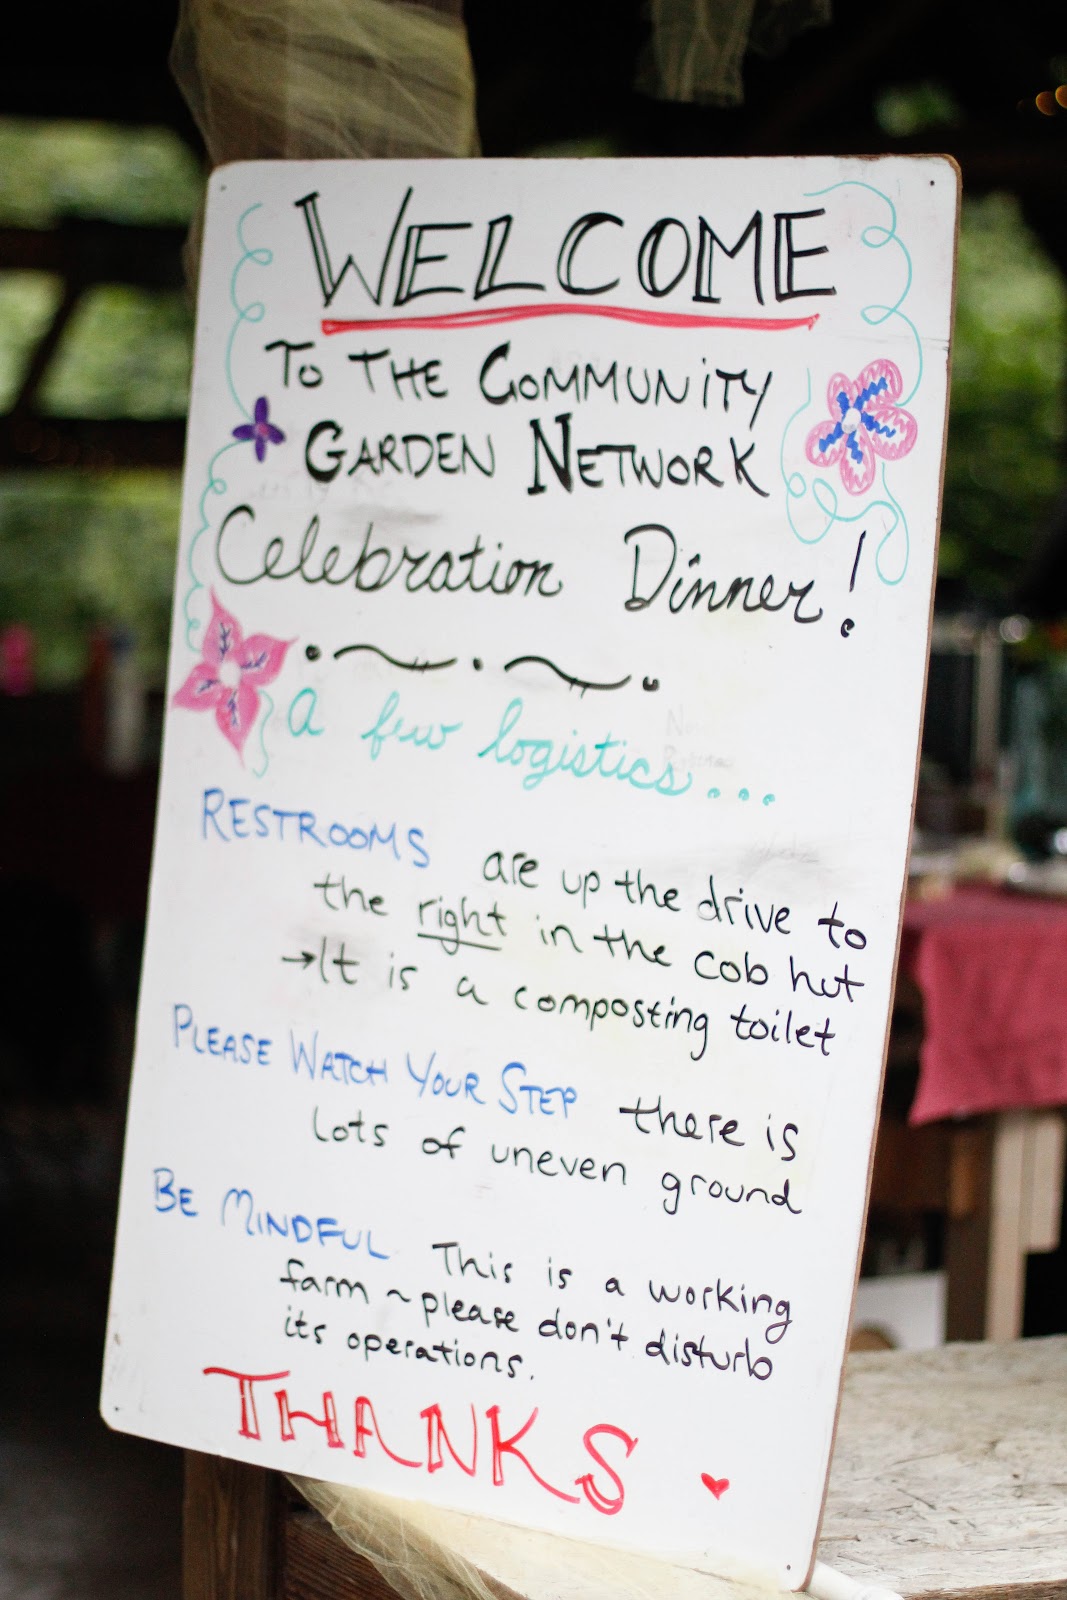 WELCOME
TO THE COMMUNITY
GARDEN NETWORK
Celebration Dinner!
A few logistics...
RESTROOMS are up the drive to
the right in the cob hut
→It is a composting toilet
PLEASE WATCH YOUR STEP there is
lots of uneven ground
BE MINDFUL This is a working
farm ~ please don't disturb
its operations.
THANKS